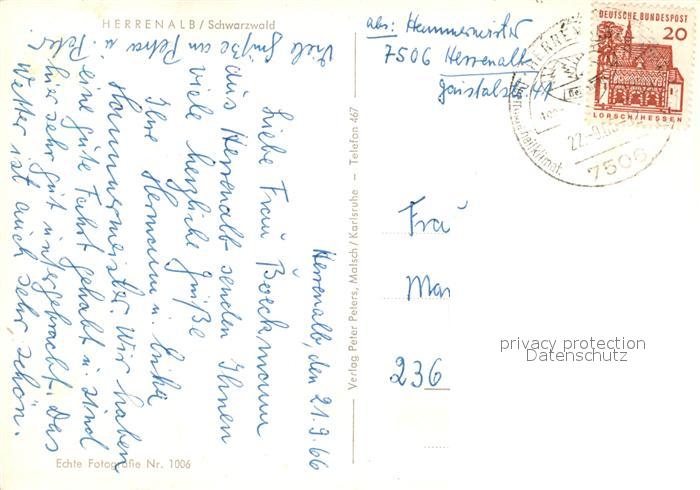 HERRENALB / Schwarzwald
Herrenalb, den 21.9.66
Liebe Frau Boeckmann
aus Herrenalb senden Ihnen
viele herzliche Grüße
Ihre Hermann u. Erika
Hammermeister. Wir haben
eine gute Fahrt gehabt u. sind
hier sehr gut untergebracht. Das
Wetter ist auch sehr schön.
Viele Grüße an Petra u. Peter.
Echte Fotografie Nr. 1006
Verlag Peter Peters, Malsch/Karlsruhe — Telefon 467
abs: Hammermeister
7506 Herrenalb
Gaistalstr. 41
DEUTSCHE BUNDESPOST
20
LORSCH/HESSEN
7506
Frau
Mar
236
privacy protection
Datenschutz